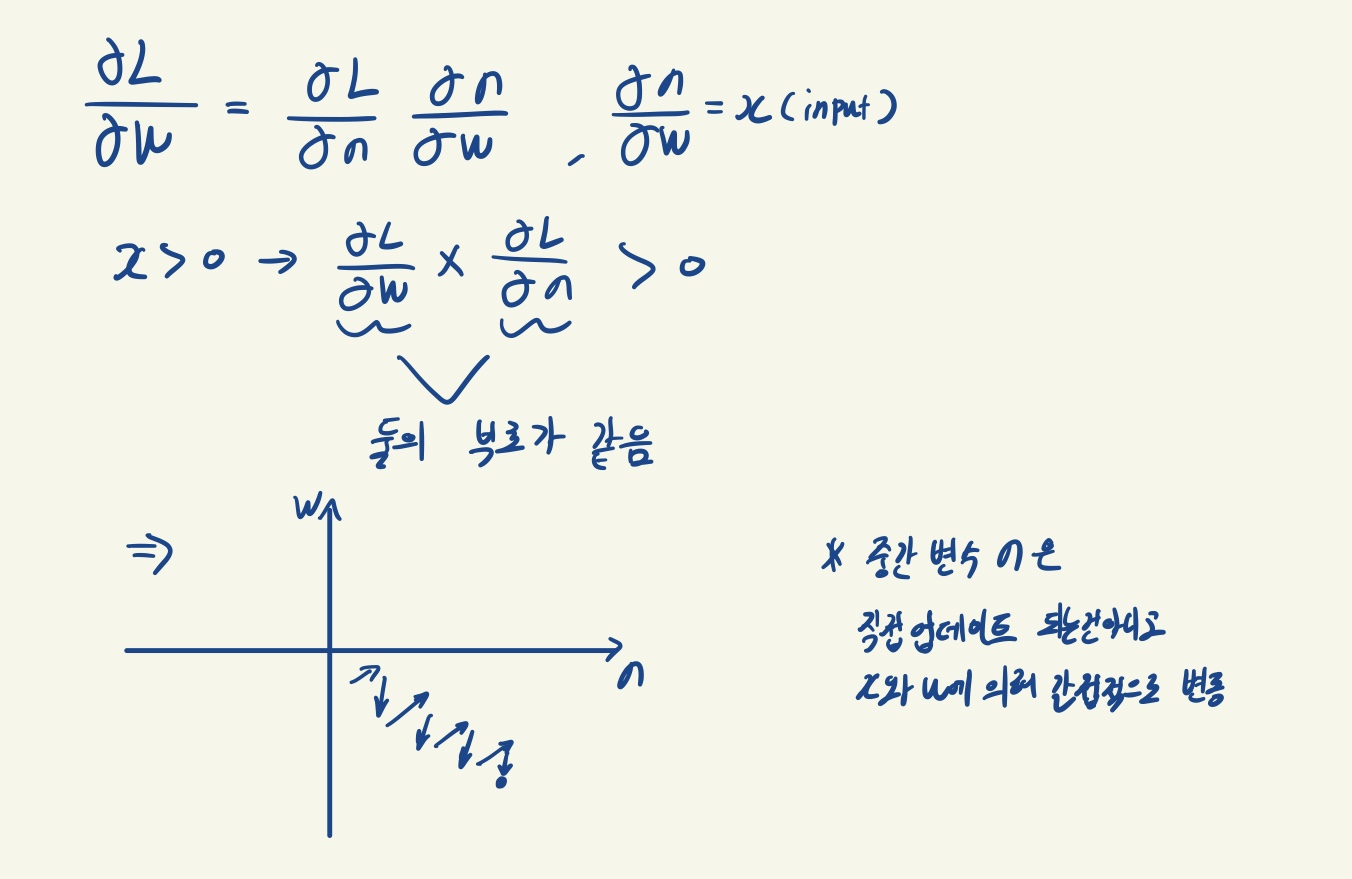 ∂L/∂w = ∂L/∂n ∂n/∂w , ∂n/∂w = x (input)
x > 0 → ∂L/∂w × ∂L/∂n > 0
둘의 부호가 같음
⇒
w
n
* 중간 변수 n은
직접 업데이트 되는건아니고
x와 w에 의해 간접적으로 변동